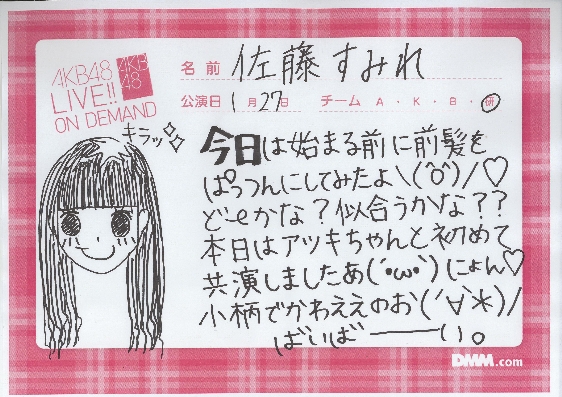 AKB48
LIVE!!
ON DEMAND
AKB
48
名前 佐藤すみれ
公演日 1月27日 チーム A・K・B・研
キラッ
今日は始まる前に前髪を
ぱっつんにしてみたよ\(^o^)/♡
どーかな?似合うかな??
本日はアツキちゃんと初めて
共演しましたあ(´・ω・`)にょん♡
小柄でかわええのお(´∀`*)/
ばいばーーい。
DMM.com